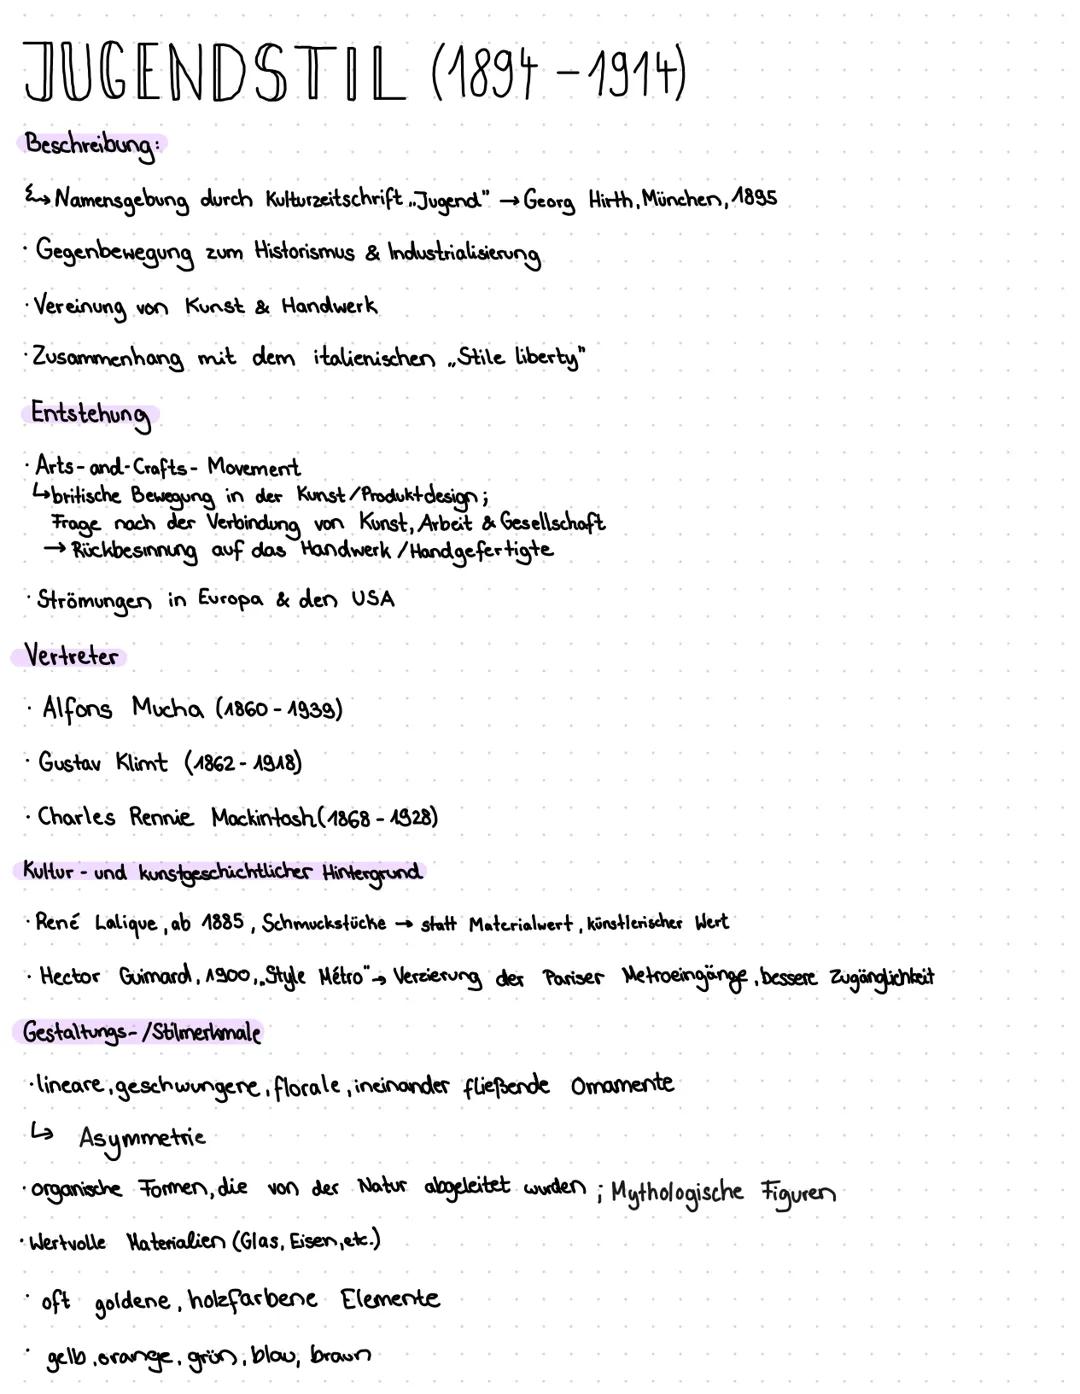 JUGENDSTIL (1894 - 1914)
Beschreibung:
↳ Namensgebung durch Kulturzeitschrift „Jugend" → Georg Hirth, München, 1895
· Gegenbewegung zum Historismus & Industrialisierung
· Vereinung von Kunst & Handwerk
· Zusammenhang mit dem italienischen „Stile liberty"
Entstehung
· Arts-and-Crafts- Movement
↳ britische Bewegung in der Kunst/Produktdesign;
Frage nach der Verbindung von Kunst, Arbeit & Gesellschaft
→ Rückbesinnung auf das Handwerk/Handgefertigte
· Strömungen in Europa & den USA
Vertreter
· Alfons Mucha (1860 - 1939)
· Gustav Klimt (1862 - 1918)
· Charles Rennie Mackintosh (1868 - 1928)
Kultur - und kunstgeschichtlicher Hintergrund
· René Lalique, ab 1885, Schmuckstücke → statt Materialwert, künstlerischer Wert
· Hector Guimard, 1900, „Style Métro" → Verzierung der Pariser Metroeingänge, bessere Zugänglichkeit
Gestaltungs-/Stilmerkmale
· lineare, geschwungene, florale, ineinander fließende Ornamente
↳ Asymmetrie
· organische Formen, die von der Natur abgeleitet wurden ; Mythologische Figuren
· Wertvolle Materialien (Glas, Eisen, etc.)
· oft goldene, holzfarbene Elemente
· gelb, orange, grün, blau, braun